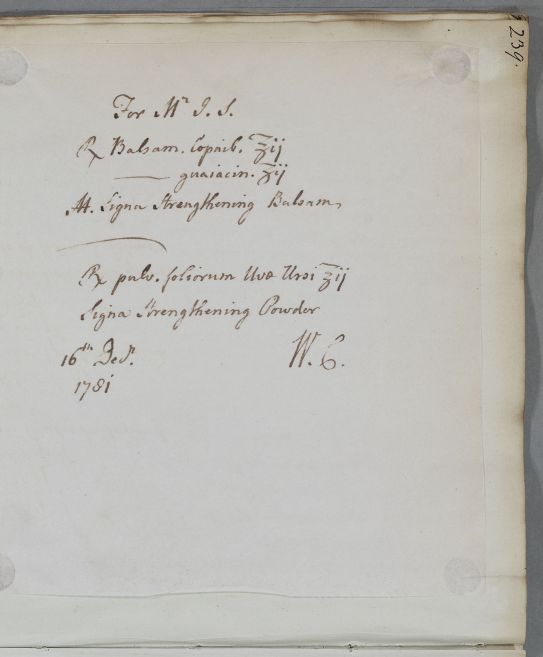 239.
For Mr J. S.
℞ Balsam. Copaib. ʒij
—— guaiacin. ʒij
M. Signa Strengthening Balsam,
℞ pulv. foliorum Uvæ Ursi ʒij
Signa Strengthening Powder
16th Decr. W. C.
1781